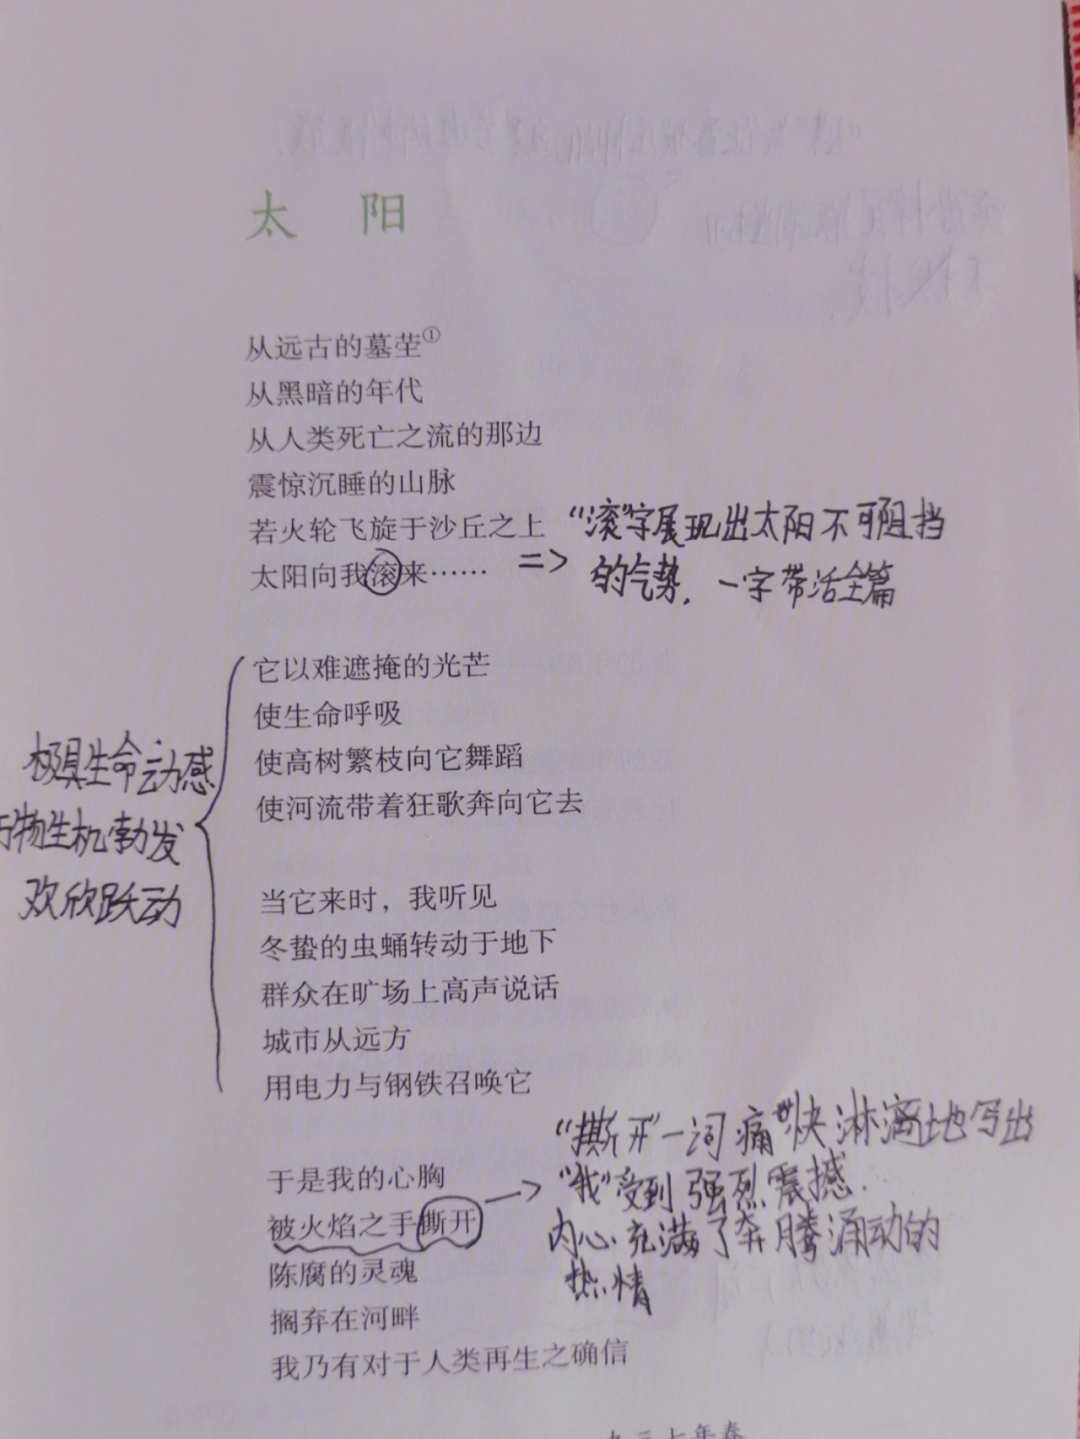 太 阳
从远古的墓茔①
从黑暗的年代
从人类死亡之流的那边
震惊沉睡的山脉
若火轮飞旋于沙丘之上
太阳向我滚来……
=> "滚"字展现出太阳不可阻挡
的气势，一字带活全篇
它以难遮掩的光芒
使生命呼吸
使高树繁枝向它舞蹈
使河流带着狂歌奔向它去
当它来时，我听见
冬蛰的虫蛹转动于地下
群众在旷场上高声说话
城市从远方
用电力与钢铁召唤它
极具生命动感
万物生机勃发
欢欣跃动
于是我的心胸
被火焰之手撕开
陈腐的灵魂
搁弃在河畔
我乃有对于人类再生之确信
"撕开"一词痛快淋漓地写出
"我"受到强烈震撼.
内心充满了奔腾涌动的
热情
九三七年春